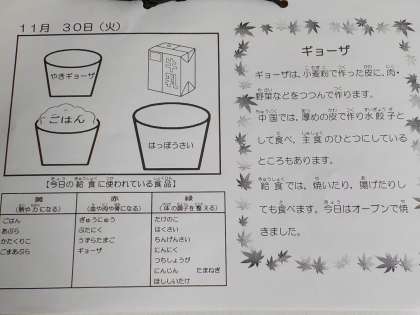 11月 30日(火)
やきギョーザ
ごはん
はっぽうさい
【今日の給食に使われている食品】
黄
(熱や力になる)
ごはん
あぶら
かたくりこ
ごまあぶら
赤
(血や肉や骨になる)
ぎゅうにゅう
ぶたにく
うずらたまご
ギョーザ
緑
(体の調子を整える)
たけのこ
はくさい
ちんげんさい
にんにく
つちしょうが
にんじん たまねぎ
ほししいたけ
ギョーザ
ギョーザは、小麦粉で作った皮に、肉・
野菜などをつつんで作ります。
中国では、厚めの皮で作り水餃子と
して食べ、主食のひとつにしている
ところもあります。
給食では、焼いたり、揚げたりし
ても食べます。今日はオーブンで焼
きました。